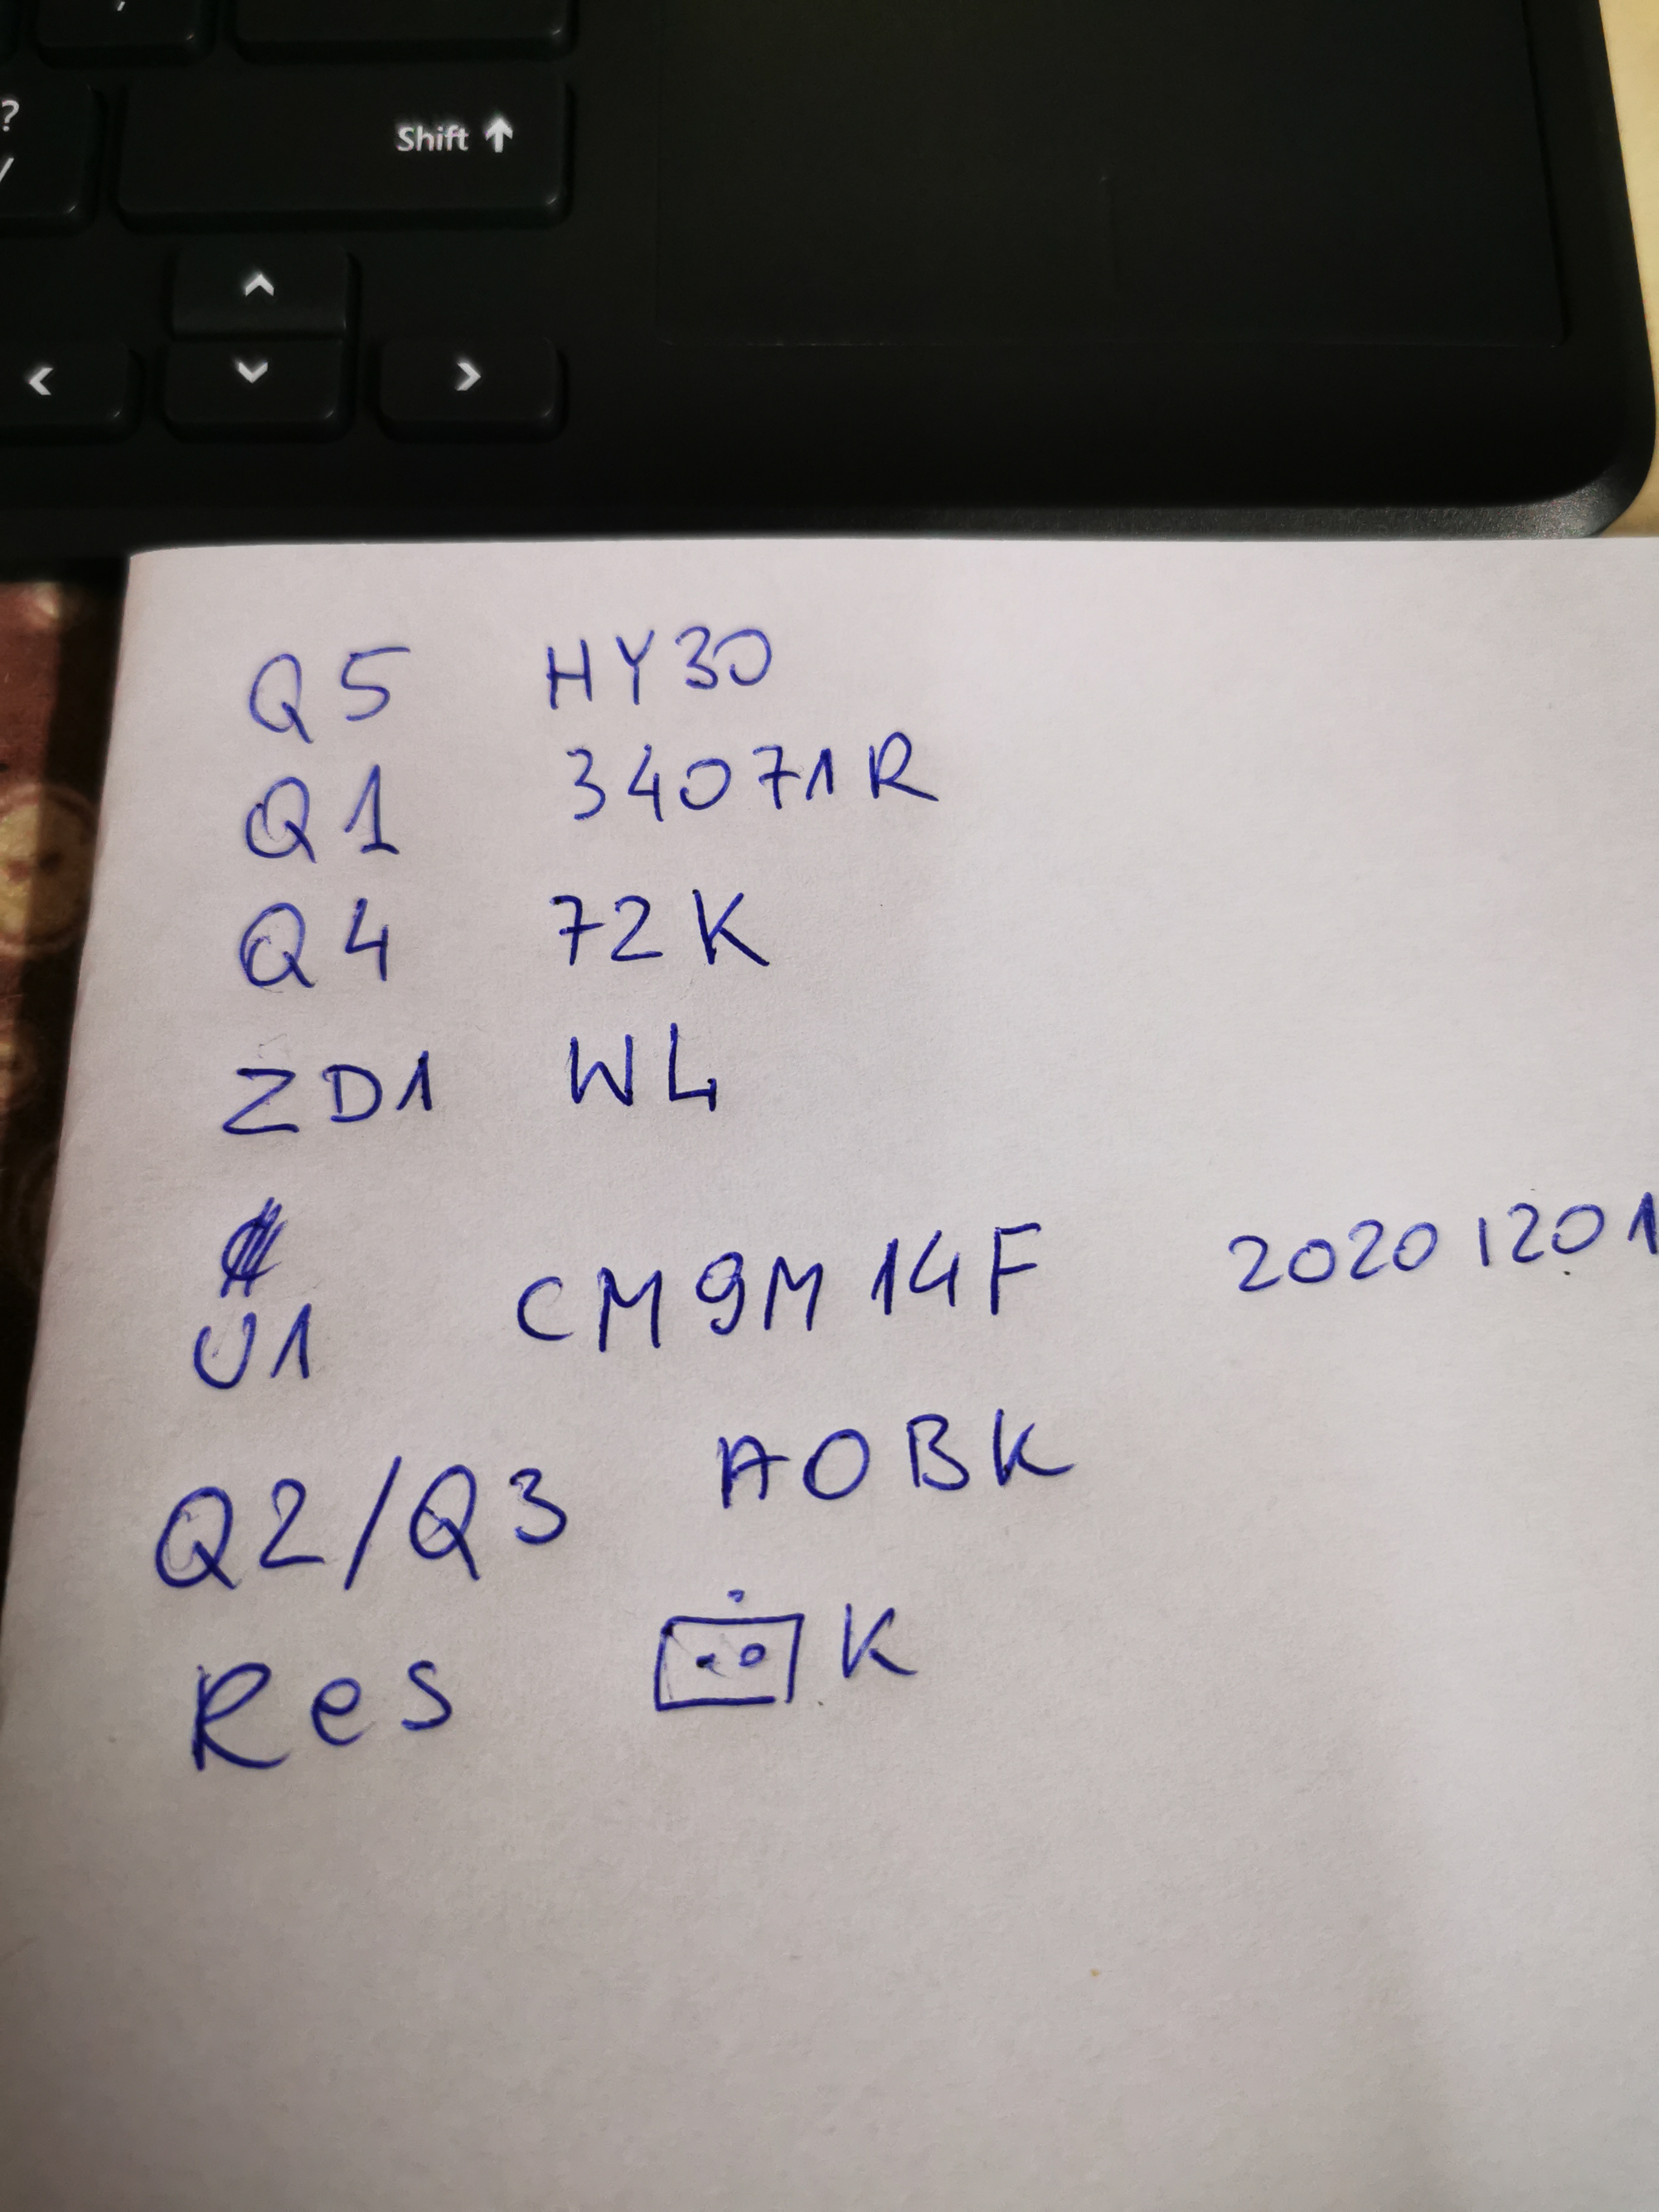 ?
/
Shift ↑
Q5 HY30
Q1 34071R
Q4 72K
ZD1 WL
U1 CM9M14F 20201201
Q2/Q3 AOBK
Res K